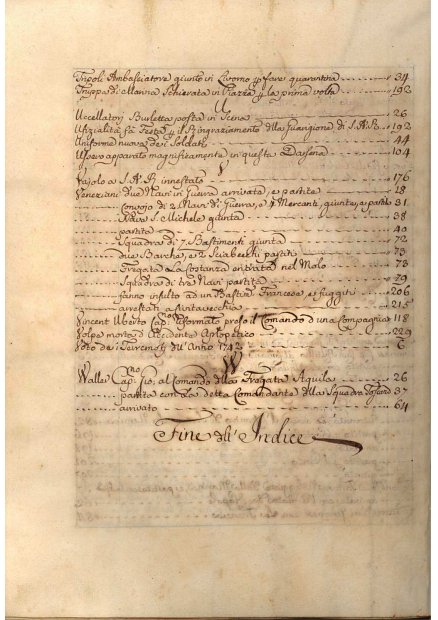 Tripoli Ambasciatore giunto in Livorno p fare quarantina 34
Truppa di Marina Schierata in Piazza p la prima volta 192
U
Uccellatori Burletta posta in Scena 26
Ufizialità fà Festa p il Ringraziamento dlla Guarigione di S.A.R. 192
Uniforme nuova de i Soldati 44
apparato magnificamente in questa Darsena 104
V
Vajolo a S.A.R. innestato 176
Veneziani due Navi in Guerra arrivate, e partite 18
Convojo di 2 Navi di Guerra, e 4 Mercanti, giunte, e partite 31
Nave S. Michele giunta 38
partita 40
Squadra di 7. Bastimenti giunta 72
due Barche, e 2 Sciabecchi partiti 73
Fregata La Costanza entrata nel Molo 73
Sqtadra di tre Navi partita 79
fanno insulto ad un Bastim. Francese, e fuggiti 206
arrestati a Pontavecchia 215
Vincent Uberto Capno. Riformato preso il Comando d'una Compagnia 118
Volpe morto d'Accidente Apopletico 229
Voto de i Terremoti dll'Anno 1742 6
W
Waller Capno. Gio, al Comando dlla Fregata Aquila 26
partito con La detta Comandante dlla Squadra Toscana 37
arrivato 64
Fine dll' Indice